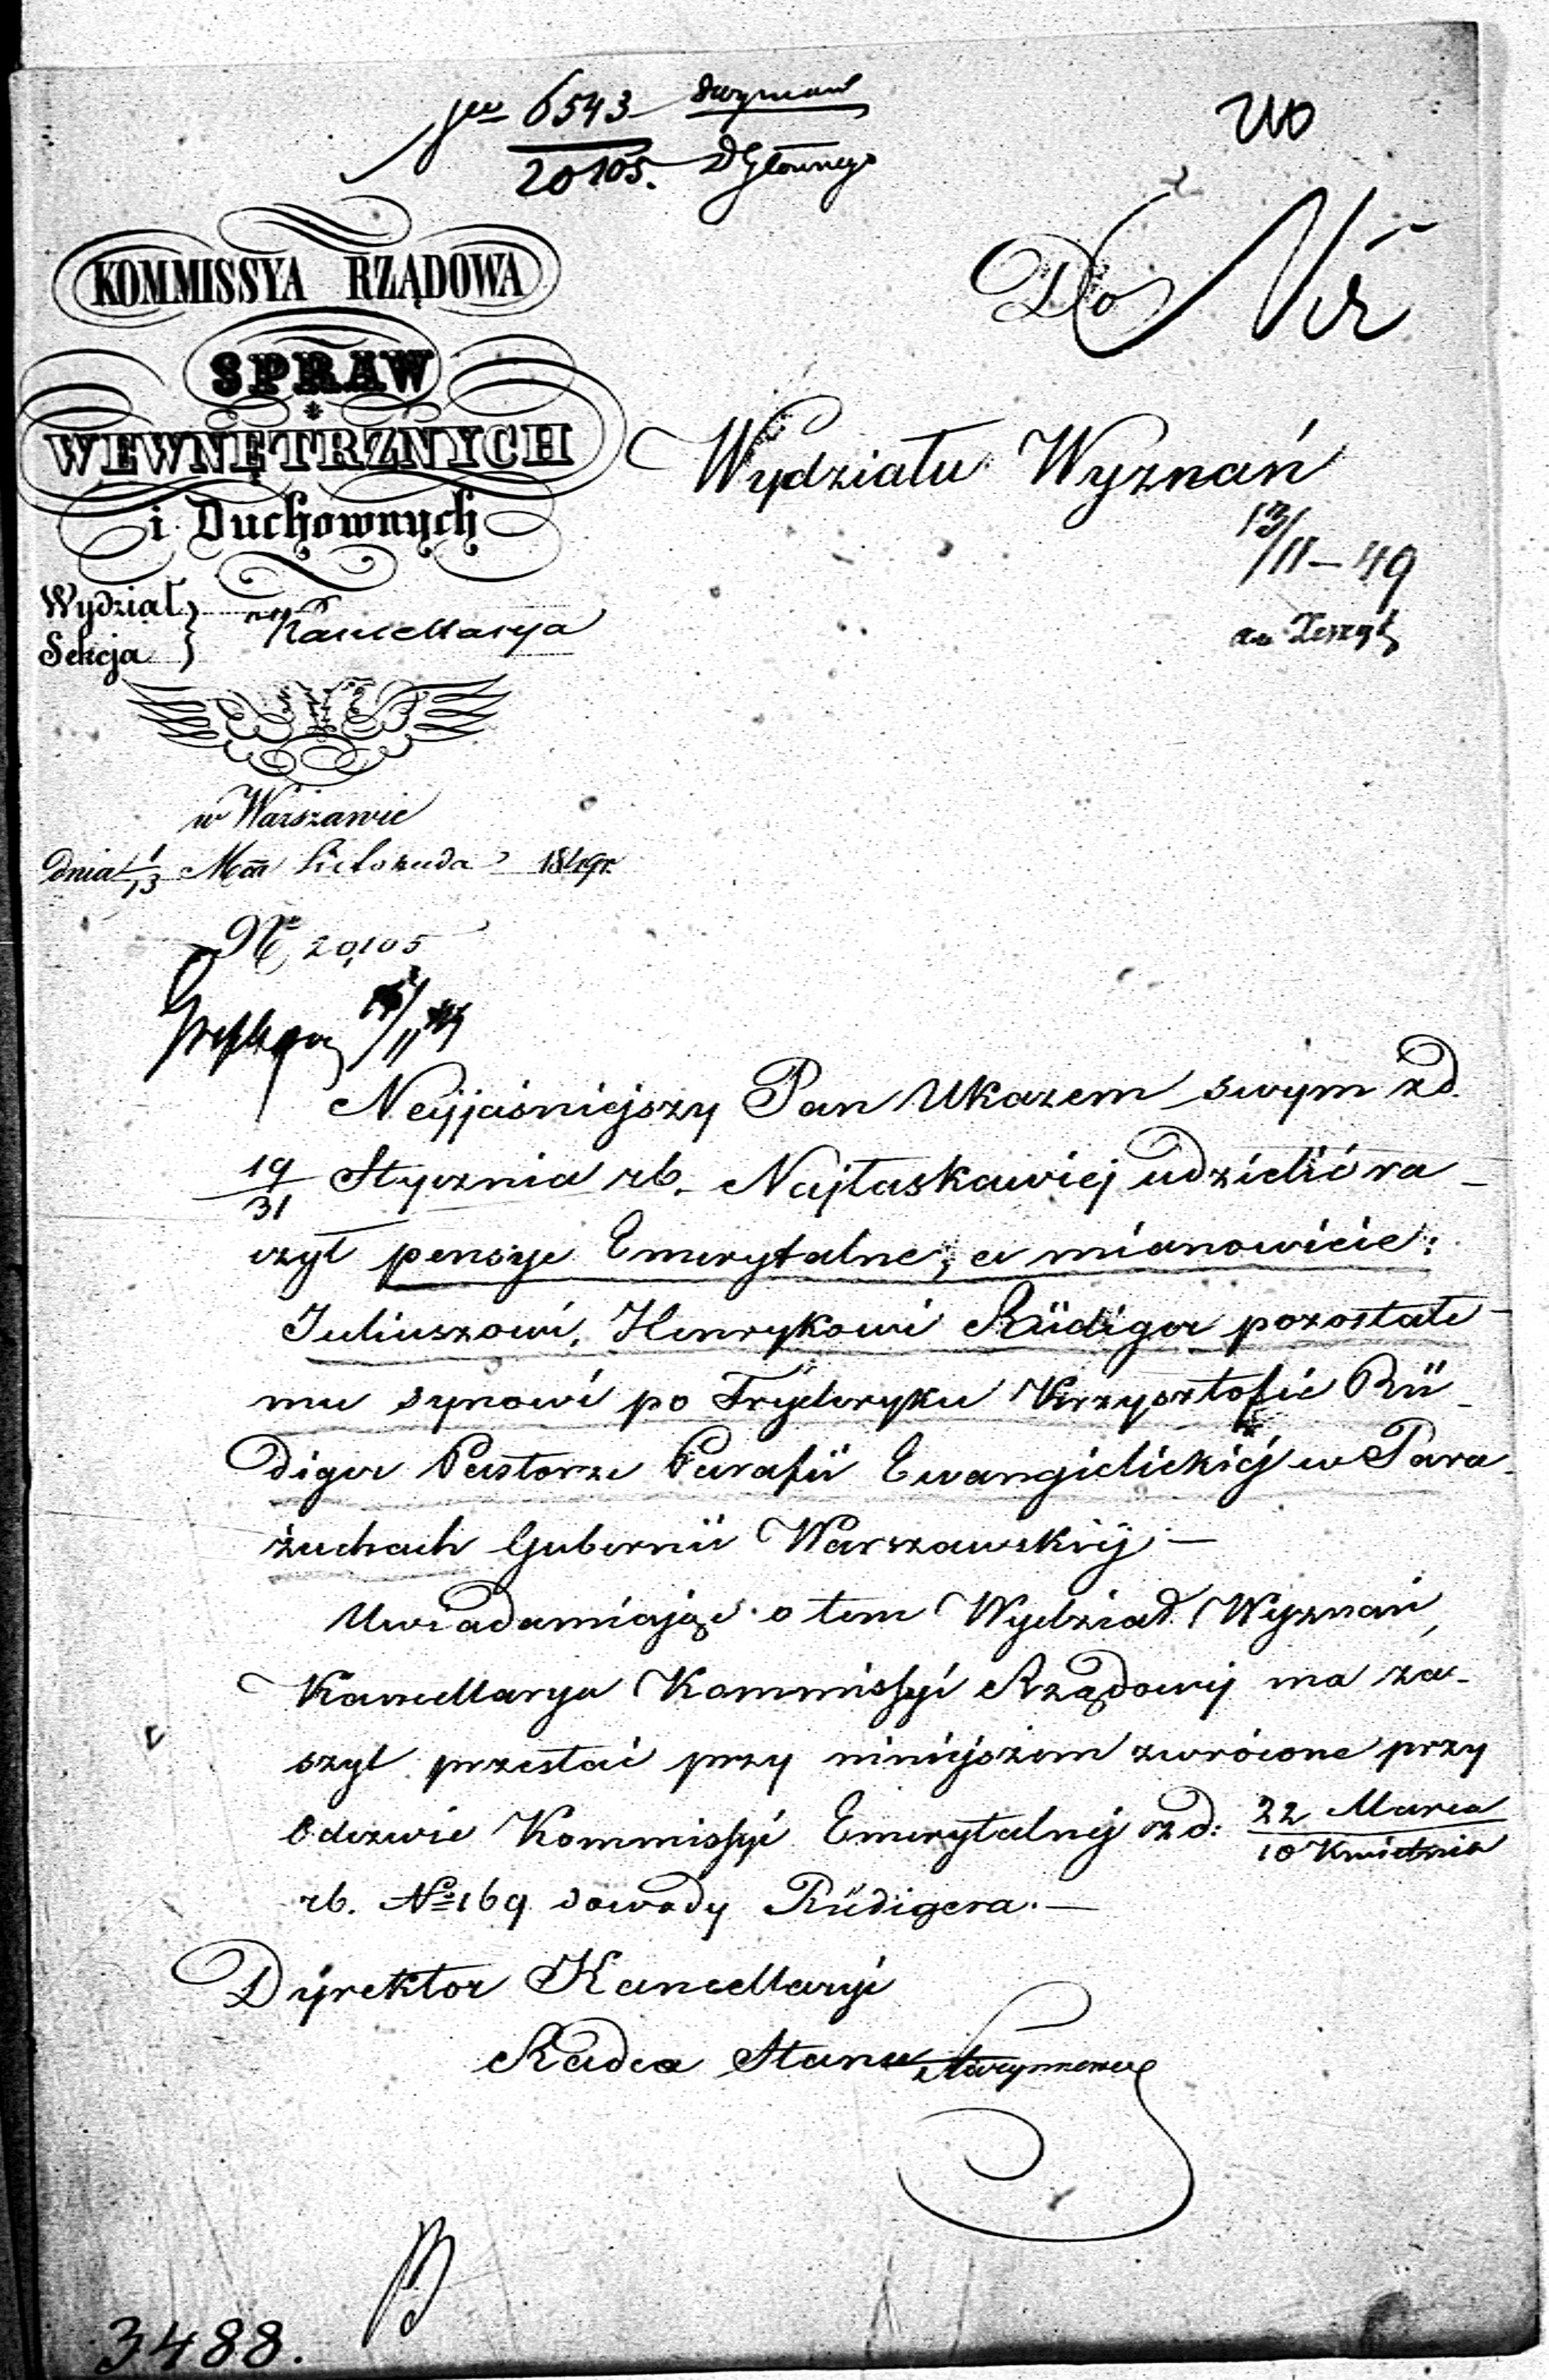 6543
20105. DGłównego
210
KOMMISSYA RZĄDOWA
SPRAW
WEWNĘTRZNYCH
i Duchownych
Wydział
Sekcja
Kancellarya
Do
Wydziału Wyznań
13/11 – 49
w Warszawie
dnia 1/13 Mca Listopada 1849r.
No 20,105
Neyjaśniejszy Pan Ukazem swym zd.
19/31 Stycznia rb. Najłaskawiej udzielić ra-
czył pensye Emerytalne, a mianowicie:
Juliuszowi, Henrykowi Rüdiger pozostałe-
mu synowi po Fryderyku Krzysztofie Rü-
diger Pastorze Parafii Ewangielickiéj w Para-
żuchach Gubernii Warszawskiéj –
Uwiadamiając o tem Wydział Wyznań,
Kancellarya Kommissyi Rządowéj ma za-
szyt przesłać przy niniéjszem zwrócone przy
Odezwie Kommissyi Emerytalnéj z d: 22 Marca / 10 Kwietnia
rb. No 169 dowody Rüdigera. –
Dyrektor Kancellaryi
Radca Stanu
3488.